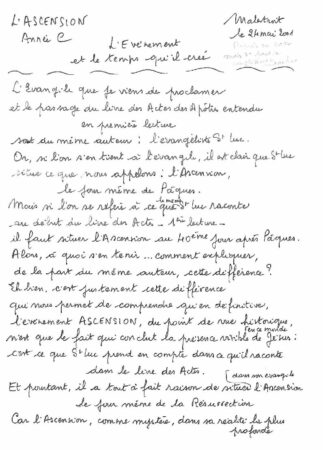 L'ASCENSION
Année C
Malestroit
le 24 mai 2001
L'Evénement
et le temps qu'il crée
L'Evangile que je viens de proclamer
et le passage du livre des Actes des Apôtres entendu
en première lecture
sont du même auteur : l'évangéliste St Luc.
Or, si l'on s'en tient à l'évangile, il est clair que St Luc
situe ce que nous appelons : l'Ascension,
le jour même de Pâques.
Mais si l'on se réfère à ce que le même St Luc raconte
au début du livre des Actes - 1ère lecture -
il faut situer l'Ascension au 40ème jour après Pâques.
Alors, à quoi s'en tenir ... comment expliquer,
de la part du même auteur, cette différence ?
Eh bien, c'est justement cette différence
qui nous permet de comprendre qu'en définitive,
l'événement ASCENSION, du point de vue historique,
n'est que le fait qui conclut la présence visible de Jésus en ce monde :
c'est ce que St Luc prend en compte dans ce qu'il raconte
dans le livre des Actes.
Et pourtant, il a tout à fait raison de situer dans son évangile l'Ascension
le jour même de la Résurrection
Car l'Ascension, comme mystère, dans sa réalité la plus
profonde